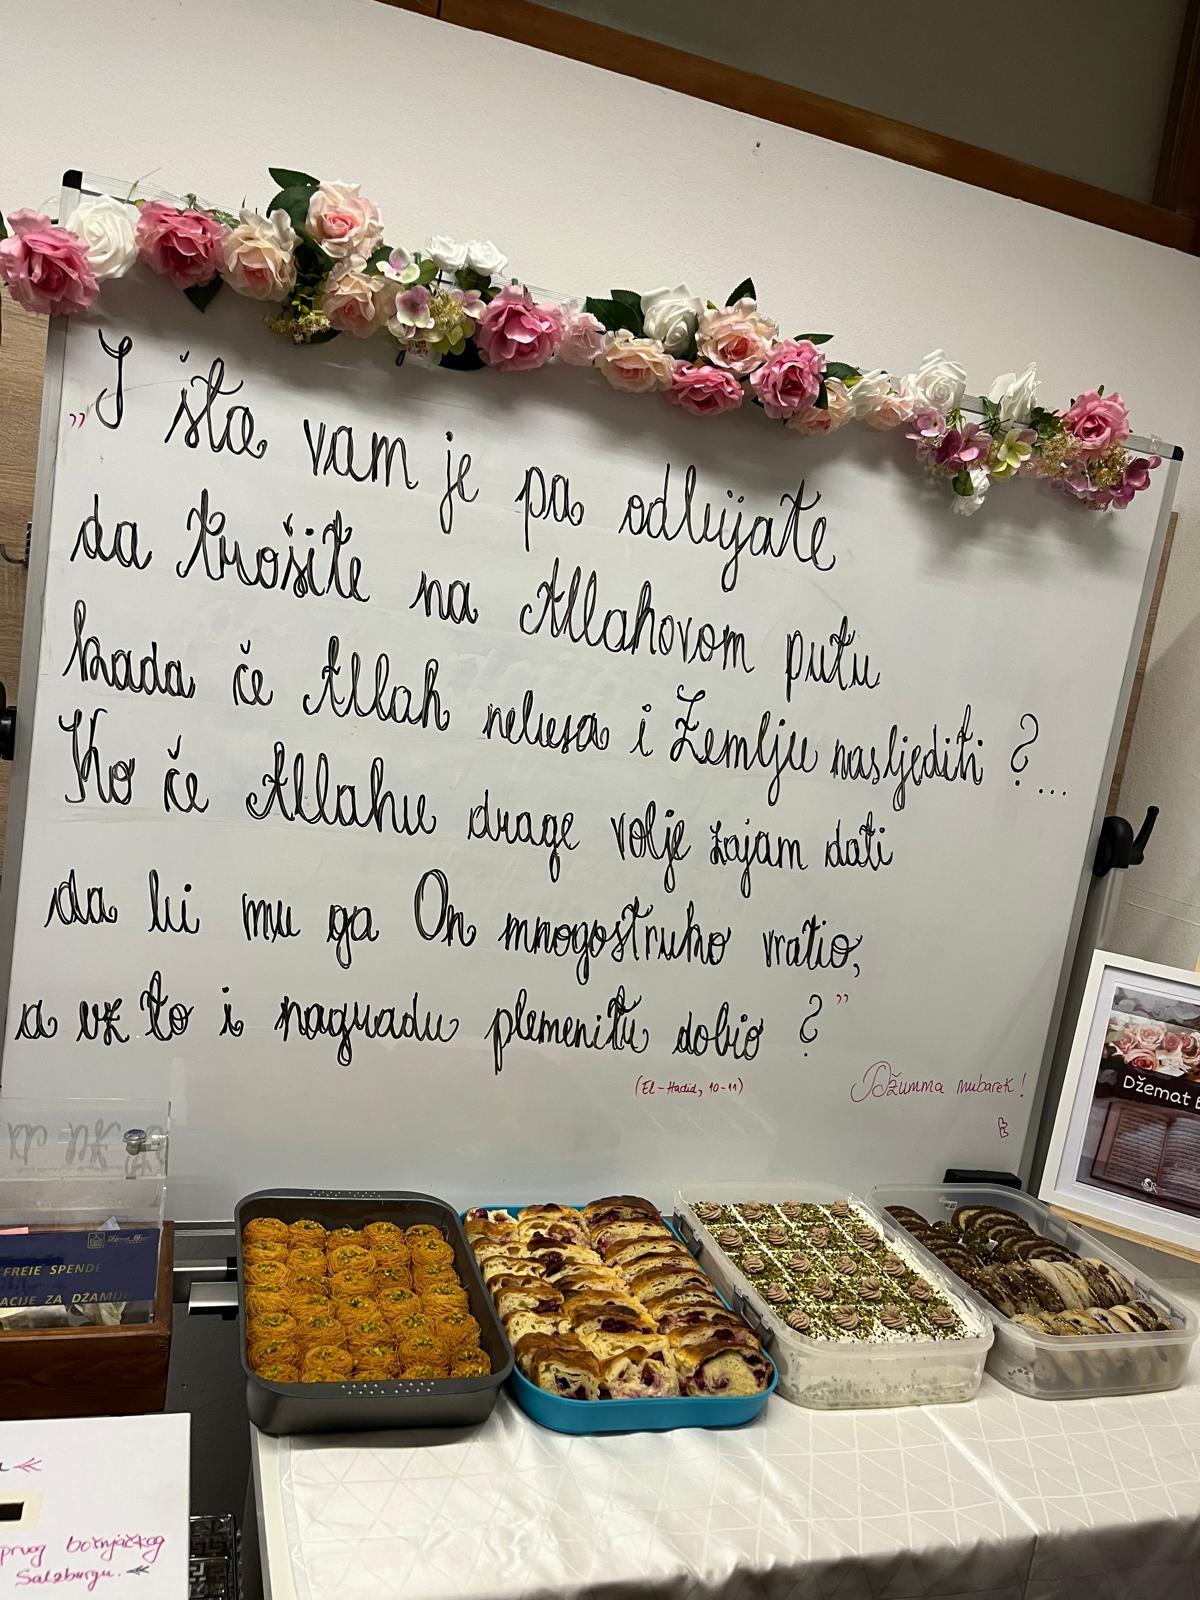 "I šta vam je pa odbijate
da trošite na Allahovom putu
kada će Allah nebesa i Zemlju naslijediti?...
Ko će Allahu drage volje zajam dati
da bi mu ga On mnogostruko vratio,
a uz to i nagradu plemenitu dobio?"
(El-Hadid, 10-11)
Džumma mubarek!
Džemat
FREIE SPENDE
ACIJE ZA DŽAMIJU
prvog bošnjačkog
Salzburgu.